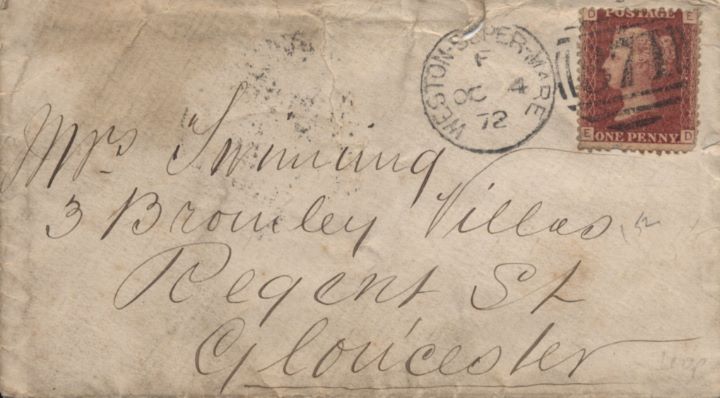 WESTON-SUPER-MARE
F
OC 4
72
D POSTAGE E
E ONE PENNY D
Mrs
3 Bromley Villas
Regent St
Gloucester